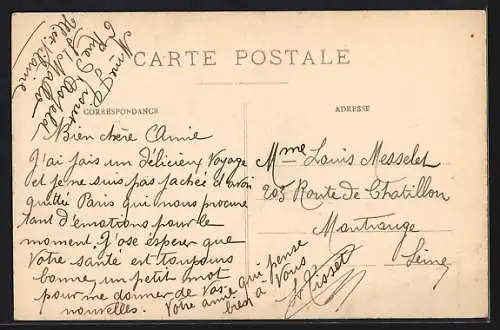 CARTE POSTALE
CORRESPONDANCE
ADRESSE
Mme
Rue
St Malo
Bien chère Amie
J'ai fais un délicieux Voyage
et je ne suis pas fachée d'avoir
quitté Paris qui nous procure
tant d'émotions pour le
moment. J'ose espérer que
Votre santé est toujours
bonne, un petit mot
pour me donner de vos
nouvelles.
Votre amie qui pense
bien à Vous
Risset
Mme Louis Messelet
205 Route de Chatillon
Montrouge
Seine